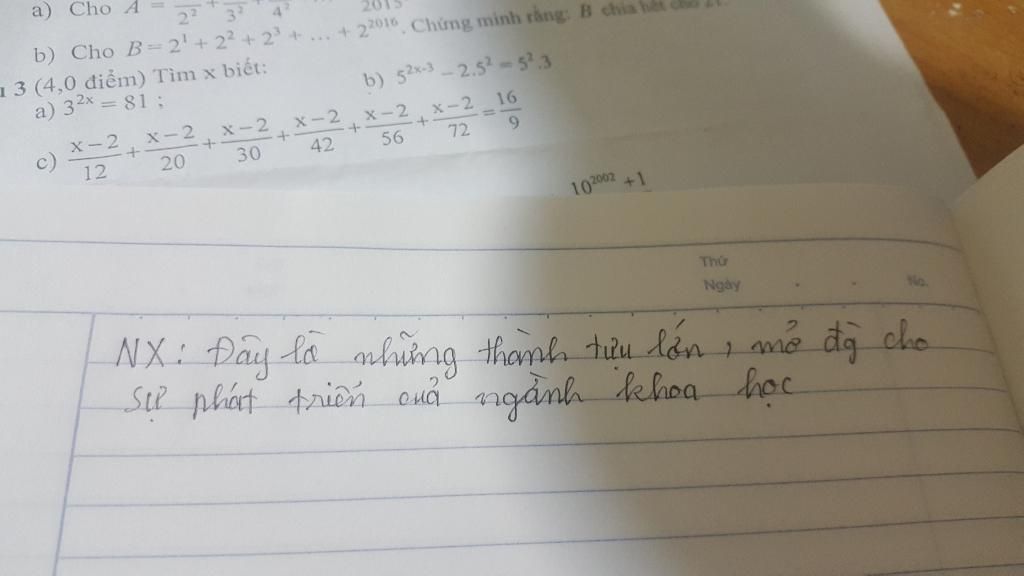 a) Cho A = \frac{}{2^2} + \frac{}{3^2} + \frac{}{4^2} 2015
b) Cho B = 2^1 + 2^2 + 2^3 + ... + 2^{2016}. Chứng minh rằng: B chia hết cho 21.
3 (4,0 điểm) Tìm x biết:
a) 3^{2x} = 81 ; b) 5^{2x-3} - 2.5^2 = 5^2.3
c) \frac{x-2}{12} + \frac{x-2}{20} + \frac{x-2}{30} + \frac{x-2}{42} + \frac{x-2}{56} + \frac{x-2}{72} = \frac{16}{9}
10^{2002} + 1
Thứ
Ngày No.
NX: Đây là những thành tựu lớn, mở đg cho
sự phát triển của ngành khoa học